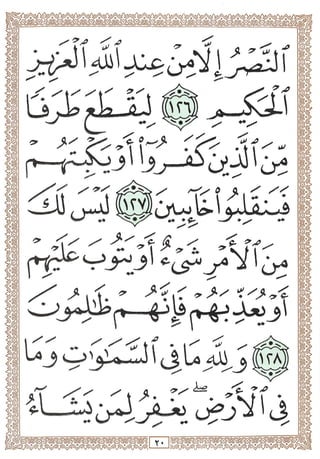 ٱلنَّصْرُ إِلَّا مِنْ عِندِ ٱللَّهِ ٱلْعَزِيزِ
ٱلْحَكِيمِ ١٢٦ لِيَقْطَعَ طَرَفًا
مِّنَ ٱلَّذِينَ كَفَرُوٓا۟ أَوْ يَكْبِتَهُمْ
فَيَنقَلِبُوا۟ خَآئِبِينَ ١٢٧ لَيْسَ لَكَ
مِنَ ٱلْأَمْرِ شَىْءٌ أَوْ يَتُوبَ عَلَيْهِمْ
أَوْ يُعَذِّبَهُمْ فَإِنَّهُمْ ظَٰلِمُونَ
١٢٨ وَلِلَّهِ مَا فِى ٱلسَّمَٰوَٰتِ وَمَا
فِى ٱلْأَرْضِ ۚ يَغْفِرُ لِمَن يَشَآءُ
٢٠